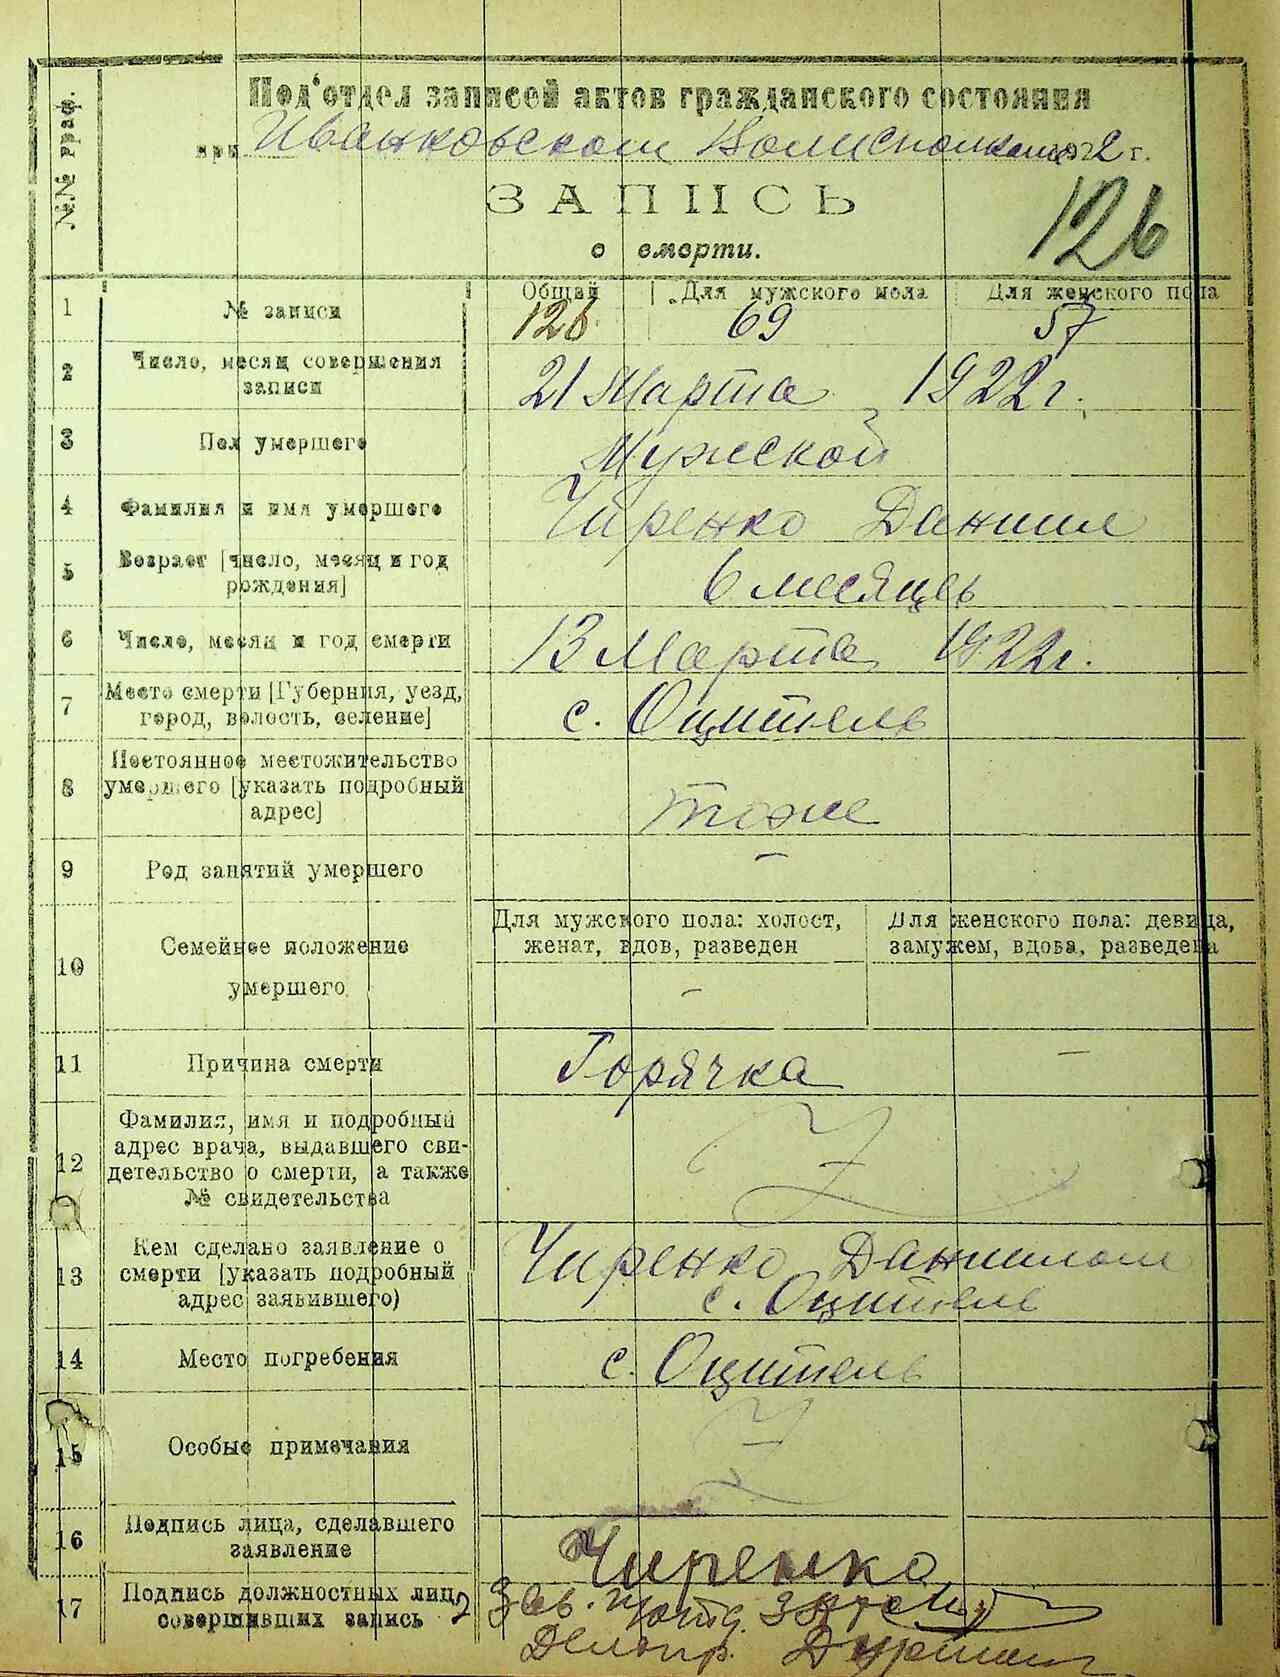 №№ граф.
Под'отдел записей актов гражданского состояния
при Иванковском Волисполкоме 1922 г.
ЗАПИСЬ
о смерти.
126
Общий Для мужского пола Для женского пола
1 № записи 126 69 57
2 Число, месяц совершения
записи 21 Марта 1922 г.
3 Пол умершего Мужской
4 Фамилия и имя умершего Чиренко Даниил
5 Возраст [число, месяц и год
рождения] 6 месяцев
6 Число, месяц и год смерти 13 Марта 1922 г.
7 Место смерти [Губерния, уезд,
город, волость, селение] с. Оцитель
8 Постоянное местожительство
умершего [указать подробный
адрес] тоже
9 Род занятий умершего –
10 Семейное положение
умершего
Для мужского пола: холост,
женат, вдов, разведен
–
Для женского пола: девица,
замужем, вдова, разведена
–
11 Причина смерти Горячка
12 Фамилия, имя и подробный
адрес врача, выдавшего сви-
детельство о смерти, а также
№ свидетельства
13 Кем сделано заявление о
смерти [указать подробный
адрес заявившего)
Чиренко Даниилом
с. Оцитель
14 Место погребения с. Оцитель
15 Особые примечания
16 Подпись лица, сделавшего
заявление Чиренко
17 Подпись должностных лиц,
совершивших запись
Зав. п/отд.
Делопр.